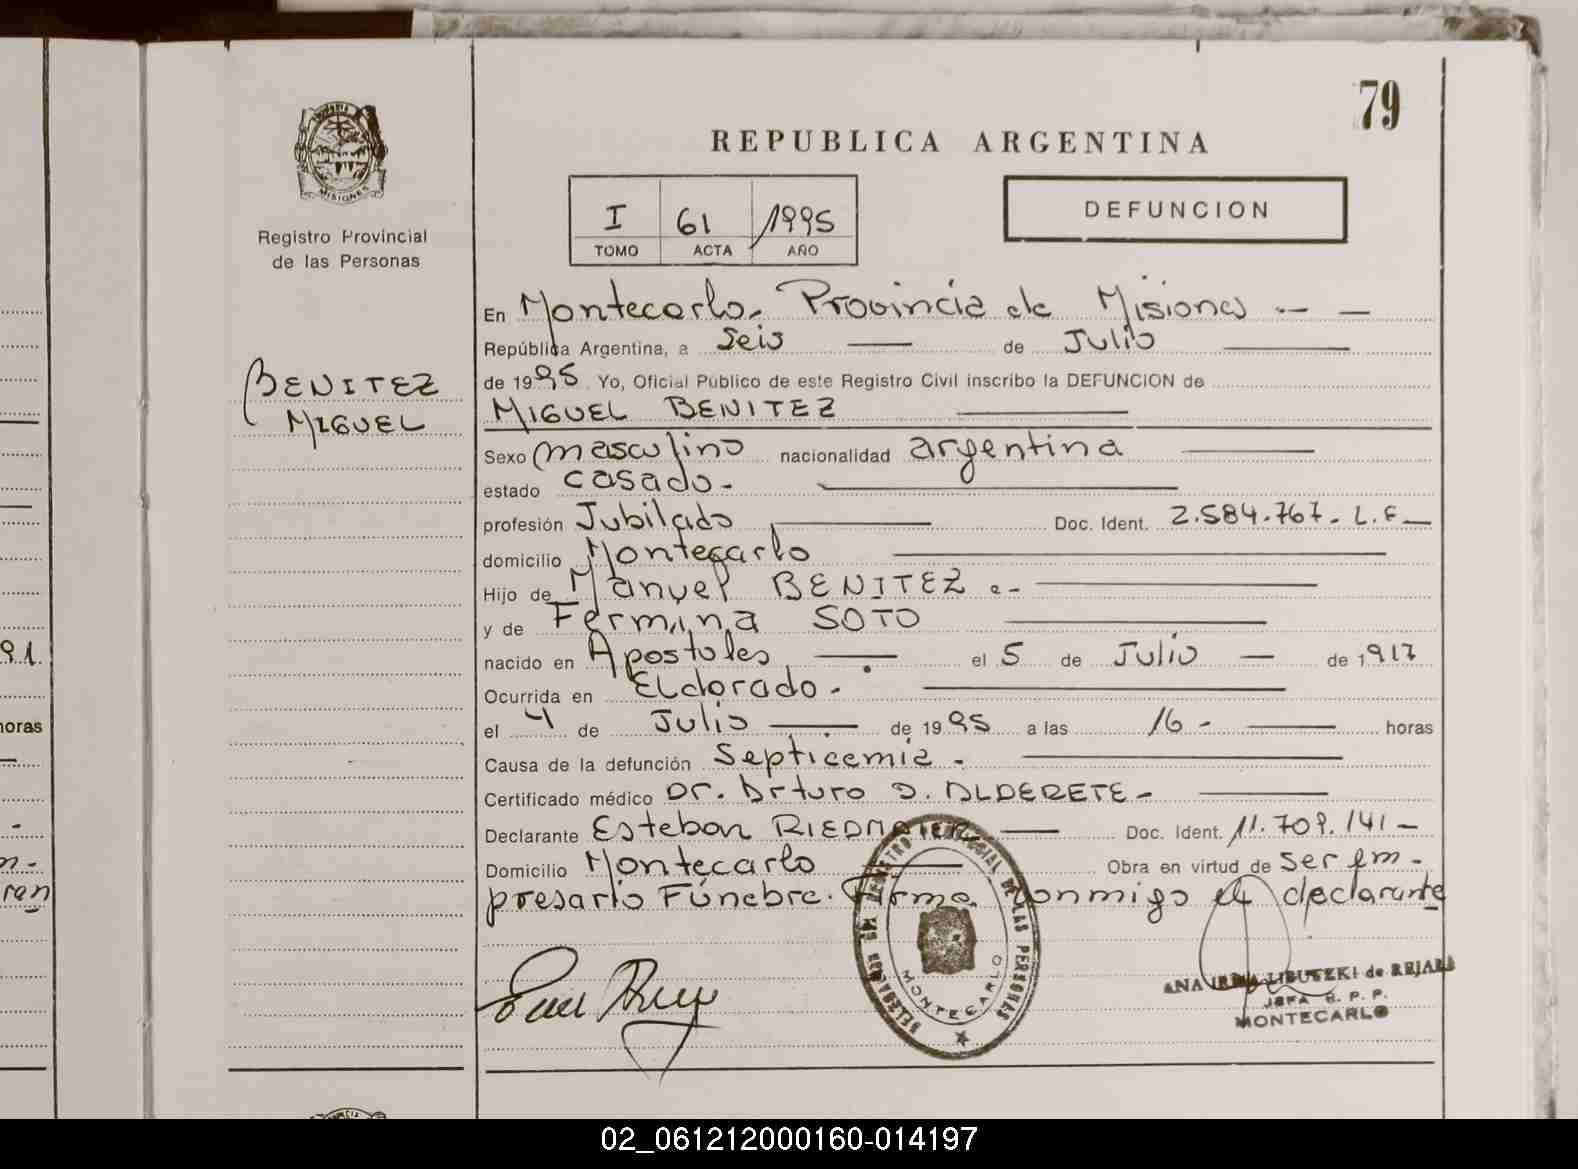 79
REPUBLICA ARGENTINA
MISIONES
Registro Provincial
de las Personas
I 61 1995
TOMO ACTA AÑO
DEFUNCION
BENITEZ
MIGUEL
En Montecarlo. Provincia de Misiones
República Argentina, a Seis de Julio
de 1995 Yo, Oficial Público de este Registro Civil inscribo la DEFUNCION de
MIGUEL BENITEZ
Sexo masculino nacionalidad argentina
estado casado.-
profesión Jubilado Doc. Ident. 2.584.767. L.E
domicilio Montecarlo
Hijo de Manuel BENITEZ
y de Fermina SOTO
nacido en Apostoles el 5 de Julio de 1917
Ocurrida en Eldorado.
el 4 de Julio de 1995 a las 16 - horas
Causa de la defunción Septicemia.
Certificado médico Dr. Arturo D. ALDERETE-
Declarante Esteban RIEDMAIER Doc. Ident. 11.709.141-
Domicilio Montecarlo Obra en virtud de ser em-
presario Fúnebre. Firma conmigo el declarante
DELEGACION REGISTRO PROVINCIAL DE LAS PERSONAS
MONTECARLO
ANA de REJALA
JEFA R. P. P.
MONTECARLO
91.
horas
02_061212000160-014197